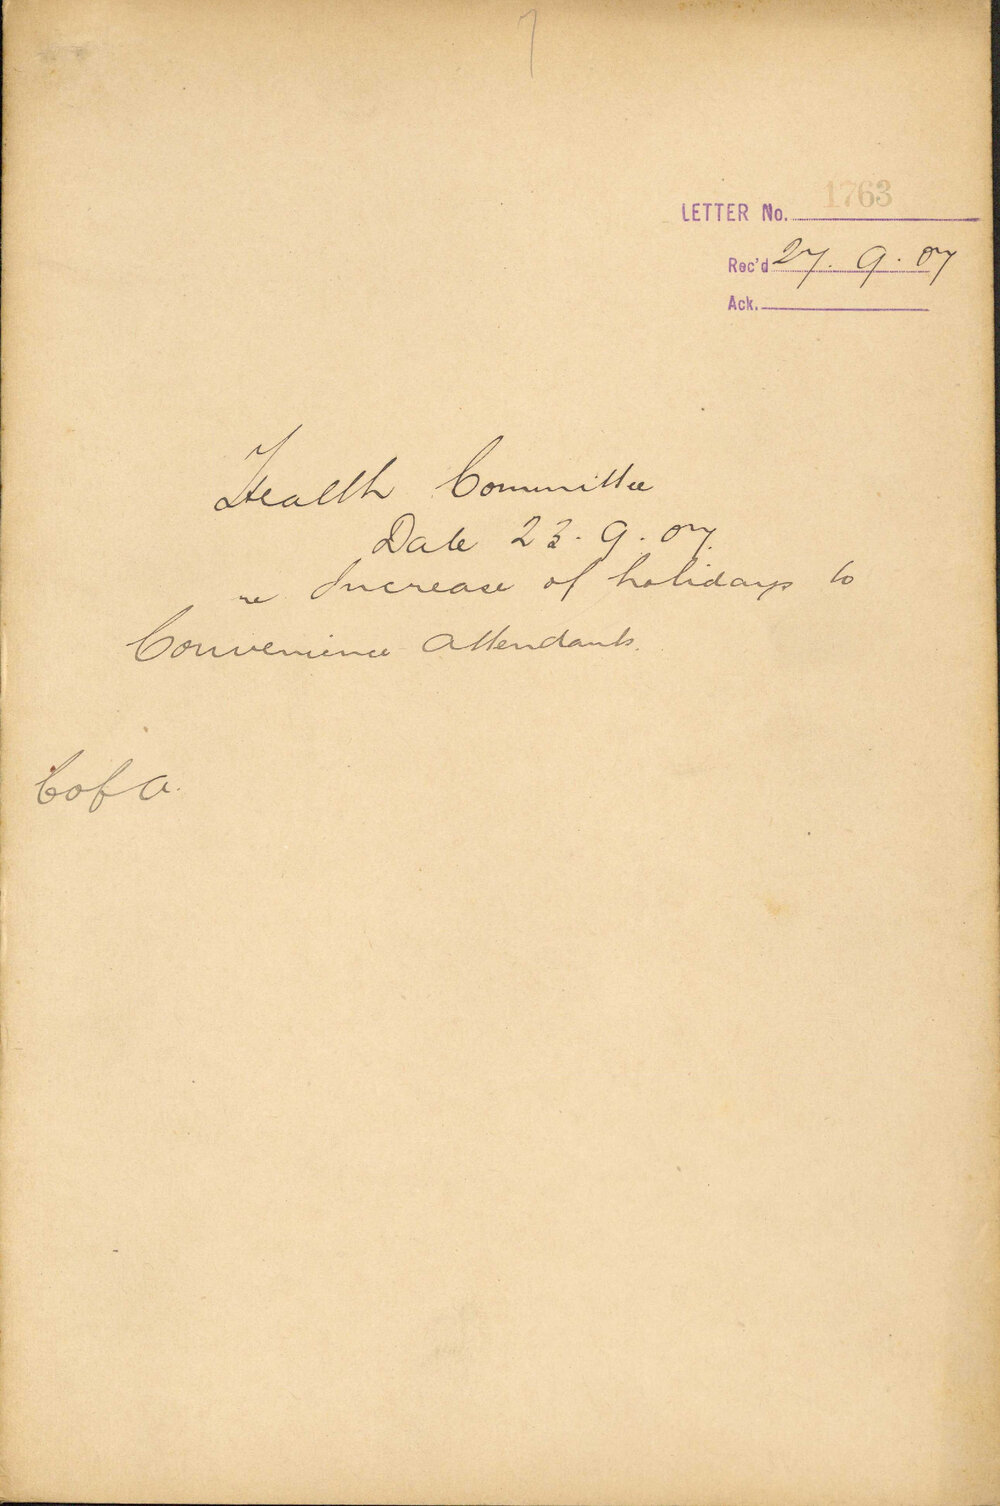 7
LETTER No. 1763
Rec'd 27. 9. 07
Ack.
Health Committee
Date 23. 9. 07.
re Increase of holidays to
Convenience Attendants.
C of A.